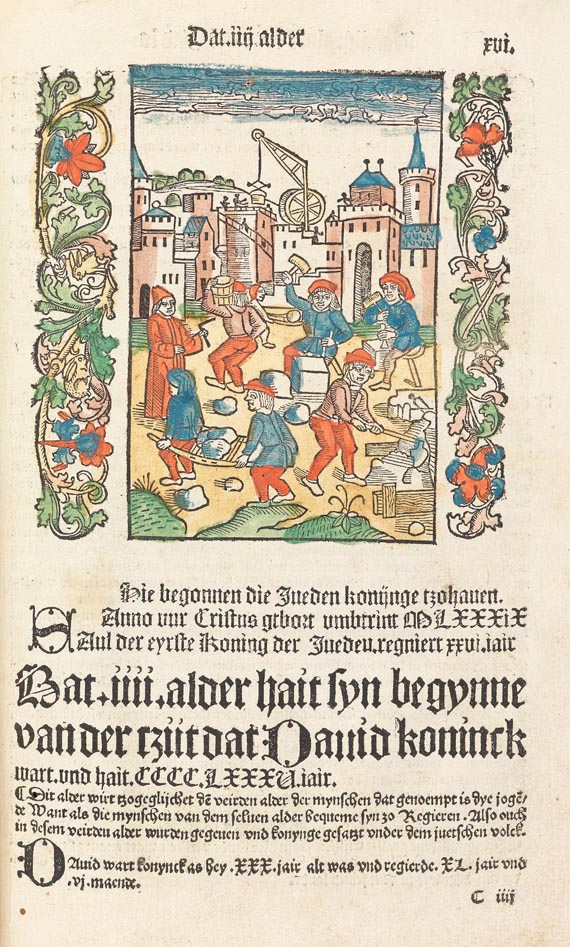 Dat .iiij. alder
xvi.
Hie begonnen die Jueden konijnge tzohauen.
Anno vur Cristus gebort vmbtrint MLXXXIX
SAul der eyrste Koning der Jueden. regniert xxvi. iair
Dat .iiii. alder hait syn begynne
van der tzijt dat Dauid koninck
wart. vnd hait. CCCC. LXXXV. iair.
¶ Dit alder wirt tzogeglijchet dē veirden alder der mynschen dat genoempt is dye jogē/
de Want als die mynschen van dem seluen alder bequeme syn zo Regieren. Also ouch
in desem veirden alder wurden gegeuen vnd konynge gesatzt vnder dem juetschen volck.
DAuid wart konynck as hey .XXX. jair alt was vnd regierde. XL. jair vnd
.vj. maende.
C iiij